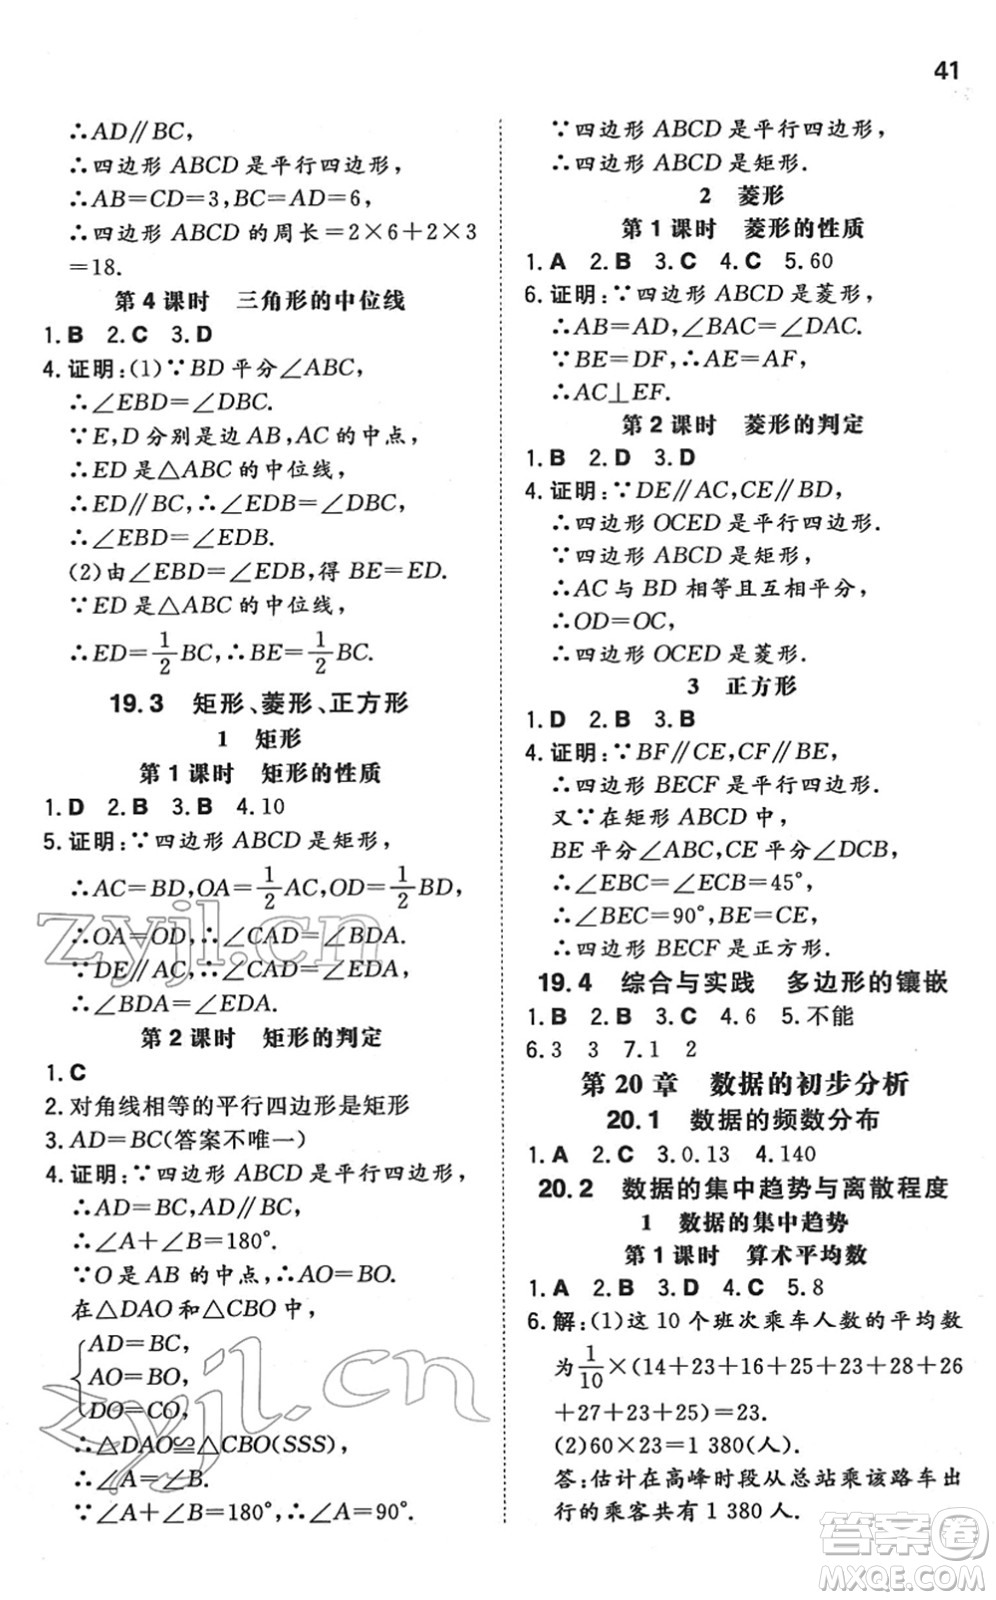 41
∴AD∥BC,
∴四边形 ABCD 是平行四边形,
∴AB=CD=3,BC=AD=6,
∴四边形 ABCD 的周长=2×6+2×3
=18.
第 4 课时　三角形的中位线
1.B　2.C　3.D
4.证明:(1)∵BD 平分∠ABC,
∴∠EBD=∠DBC.
∵E,D 分别是边 AB,AC 的中点,
∴ED 是△ABC 的中位线,
∴ED∥BC,∴∠EDB=∠DBC,
∴∠EBD=∠EDB.
(2)由∠EBD=∠EDB,得 BE=ED.
∵ED 是△ABC 的中位线,
∴ED=1/2 BC,∴BE=1/2 BC.
19.3　矩形、菱形、正方形
1　矩形
第 1 课时　矩形的性质
1.D　2.B　3.B　4.10
5.证明:∵四边形 ABCD 是矩形,
∴AC=BD,OA=1/2 AC,OD=1/2 BD,
∴OA=OD,∴∠CAD=∠BDA.
∵DE∥AC,∴∠CAD=∠EDA,
∴∠BDA=∠EDA.
第 2 课时　矩形的判定
1.C
2.对角线相等的平行四边形是矩形
3.AD=BC(答案不唯一)
4.证明:∵四边形 ABCD 是平行四边形,
∴AD=BC,AD∥BC,
∴∠A+∠B=180°.
∵O 是 AB 的中点,∴AO=BO.
在△DAO 和△CBO 中,
AD=BC,
AO=BO,
DO=CO,
∴△DAO≌△CBO(SSS),
∴∠A=∠B.
∵∠A+∠B=180°,∴∠A=90°.
∵四边形 ABCD 是平行四边形,
∴四边形 ABCD 是矩形.
2　菱形
第 1 课时　菱形的性质
1.A　2.B　3.C　4.C　5.60
6.证明:∵四边形 ABCD 是菱形,
∴AB=AD,∠BAC=∠DAC.
∵BE=DF,∴AE=AF,
∴AC⊥EF.
第 2 课时　菱形的判定
1.B　2.D　3.D
4.证明:∵DE∥AC,CE∥BD,
∴四边形 OCED 是平行四边形.
∵四边形 ABCD 是矩形,
∴AC 与 BD 相等且互相平分,
∴OD=OC,
∴四边形 OCED 是菱形.
3　正方形
1.D　2.B　3.B
4.证明:∵BF∥CE,CF∥BE,
∴四边形 BECF 是平行四边形.
又∵在矩形 ABCD 中,
BE 平分∠ABC,CE 平分∠DCB,
∴∠EBC=∠ECB=45°,
∴∠BEC=90°,BE=CE,
∴四边形 BECF 是正方形.
19.4　综合与实践　多边形的镶嵌
1.B　2.B　3.C　4.6　5.不能
6.3　3　7.1　2
第 20 章　数据的初步分析
20.1　数据的频数分布
1.A　2.C　3.0.13　4.140
20.2　数据的集中趋势与离散程度
1　数据的集中趋势
第 1 课时　算术平均数
1.A　2.B　3.D　4.C　5.8
6.解:(1)这 10 个班次乘车人数的平均数
为1/10×(14+23+16+25+23+28+26
+27+23+25)=23.
(2)60×23=1 380(人).
答:估计在高峰时段从总站乘该路车出
行的乘客共有 1 380 人.
zyjl.cn
zyjl.cn
答案圈
MXQE.COM